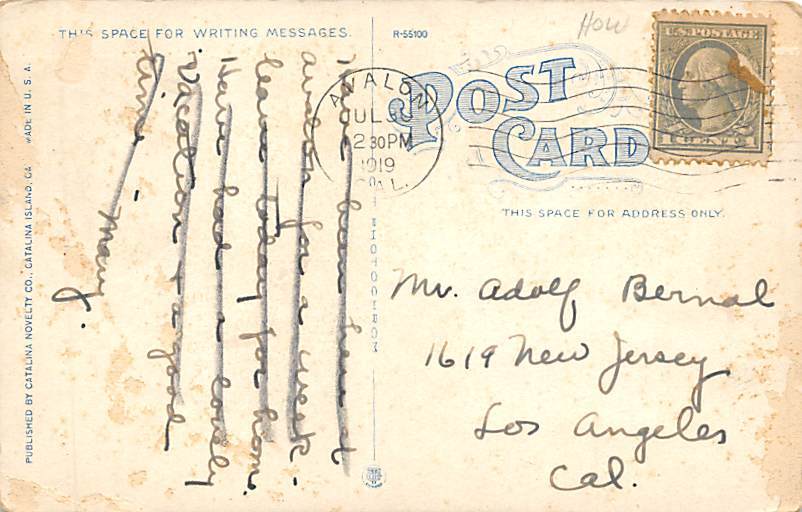 THIS SPACE FOR WRITING MESSAGES.
R-55100
HOW
U.S. POSTAGE
CENTS
AVALON
JUL 30
2 30 PM
1919
CAL.
POST
CARD
THIS SPACE FOR ADDRESS ONLY.
Have been here at
Avalon for a week -
leave today for home.
Have had a lovely
Vacation + a good
time -
Mary
J.
Mr. Adolf Bernal
1619 New Jersey
Los Angeles
Cal.
PUBLISHED BY CATALINA NOVELTY CO., CATALINA ISLAND, CA
MADE IN U. S. A.